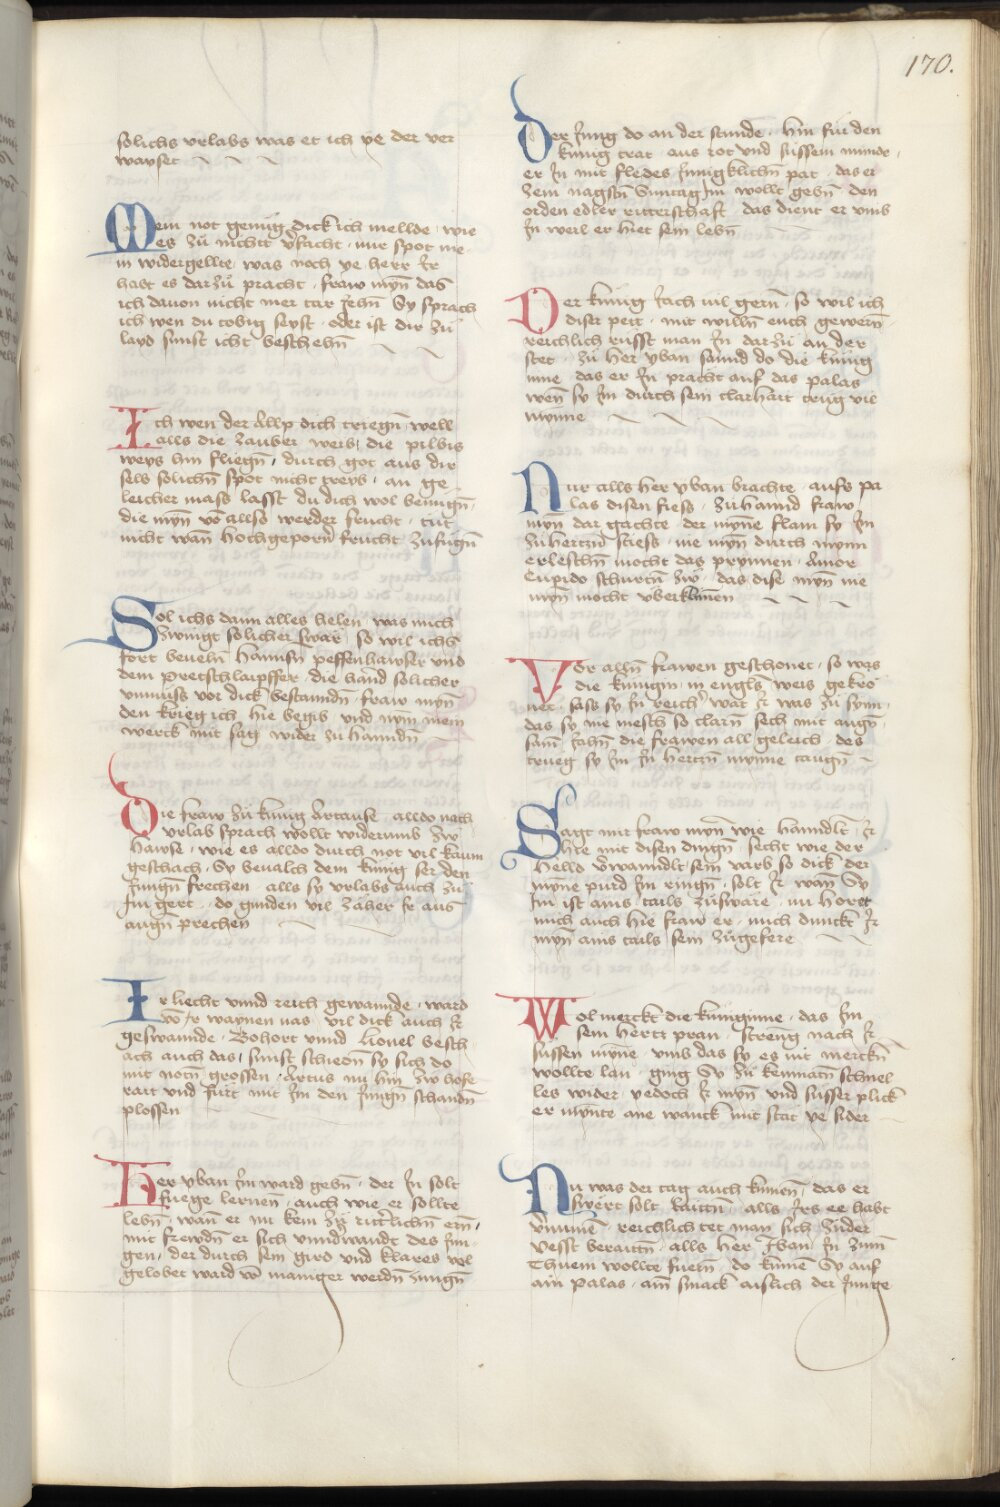 170.
solichs vrlabs was et ich ye der ver
wayset
Mein not genueg dick ich mellde · wie
es zů nichte vͦfacht · nur spot me
in widergellte · was noch ye herr Ir
habt es darzů pracht · fraw mȳn das
ich dauon nicht mer tar Sy sprach
ich wen du tobig seyst · oder ist dir zu
layd sunst icht beschehn̄
Ich wen der Allp dich triegn̄ well
alls die zauber weib · die pilbis
weys hin fliegn̄ · durch got aus dir
selb solichn̄ spot nicht treyb · an ge
leicher mass lasst du dich wol benuegn̄
die mȳn vō allso werder frucht · tüt
nicht wan̄ hochgeporn̄ frucht zufuegn̄
Sol ichs dann alles helen · was mich
zwingt solicher swär · so wil ichs
fort beueln̄ Hannsn̄ peffenhawser vnd
dem pretschlaipffer · die hand solicher
vnmuss vor dick bestanndn̄ · fraw mȳn
den krieg ich hie begib · vnd nym mein
werck mit sag wider zu hanndn̄
Die fraw zů kunig Artause alldo nach
vrlab sprach wollt widerumb zw
hawse · wie es alldo durch not vil kaum
geschach · Sy beualch dem kunig ser den
Jungn̄ frechen · alls sy vrlabs auch zu
Im gert · do gunden vil zäher Ir aus
augn̄ prechen
Ir liecht vnnd reich gewannde · ward
vō Ir waynen nas · vil dick auch Ir
geswannde · Bohort vnnd Lionel besch
ach auch das · sunst schiedn̄ sy sich do
mit notn̄ grossen · Artus nu hin zw hofe
rait vnd fürt mit Im den Jungn̄ schandn̄
plossen
Her yban Im ward gebn̄ · der In solt
fuege lernen̄ · auch wie er sollte
lebn̄ · wan̄ er nu kem zů ritterlichn̄ ern̄ ·
mit frewdn̄ er sich vnndwandt des Jun
gen · der durch sein gird vnd klares vel
gelobet ward vō maniger werdn̄ zungn̄
Der Jung do an der stunde · hin für den
künig trat · aus rot vnd süssem munde ·
er In mit fledes Innigklichn̄ pat · das er
zem nagstn̄ Suntag Im wollt gebn̄ · den
orden edler ritterschaft · das dient er vmb
In weil er hiet sein lebn̄
Der künig Jach vil gern̄ · so wil ich
diser peit · mit willn̄ euch gewern̄ ·
reichlich rüsst man In darzů an der
stet · zů her yban sannd do die künig
inne · das er In pracht auf das palas
wen̄ sy Im durch sein clarhait trug vil
mynne
Nur alls her yban brachte · aufs pa
las disen siess · zuhannd fraw
mȳn dar gachte · der mynne flam sy In
zuhertzn̄ stiess · nie mȳn durch mynn
erleschn̄ mocht das prynnen · Amor
Cupido schürtn̄ zw · das dise mȳn nie
mȳn mocht vberkumen
Vor alln̄ frawen geschonet · so was
die künigin · in engls weis gekrö
net · sass sy In reich wat Ir was zů synn ·
das sy nie mensch so clarn̄ sech mit augn̄ ·
sam̄ Jahn̄ die frawen all geleich · des
trueg sy Im In hertzn̄ mynne taugn̄
Sagt mir fraw mȳn wie hanndlt Ir
hie mit disen dingn̄ · secht wie der
helld vͦwanndlt sein varb so dick · der
mynne purd Im ringn̄ · solt Ir wan̄ Sy
Im ist ains tails zuswäre · nu höret
mich auch hie fraw er · mich dunckt Ir
mȳn ains tails sein zůgefere
Wol merckt die küniginne · das Im
sein hertz pran · streng nach Ir
süssen mynne · vmb das sy es nit merckn̄
wollte lan · ging Sy zů kemnatn̄ schnel
les wider · yedoch Ir mȳn vnd süsser plick
er mynte ane wanck mit stät ye sider
Nu was der tag auch kumen̄ · das er
swert solt laittn̄ · alls Irs ee habt
vͦnumen̄ · reichlich tet man sich zuder
vesst beraittn̄ · alls her Iban In zum
Thuem wollte fuern̄ · do kumen̄ Sy auf
ain palas · ain smack aislich der Junge